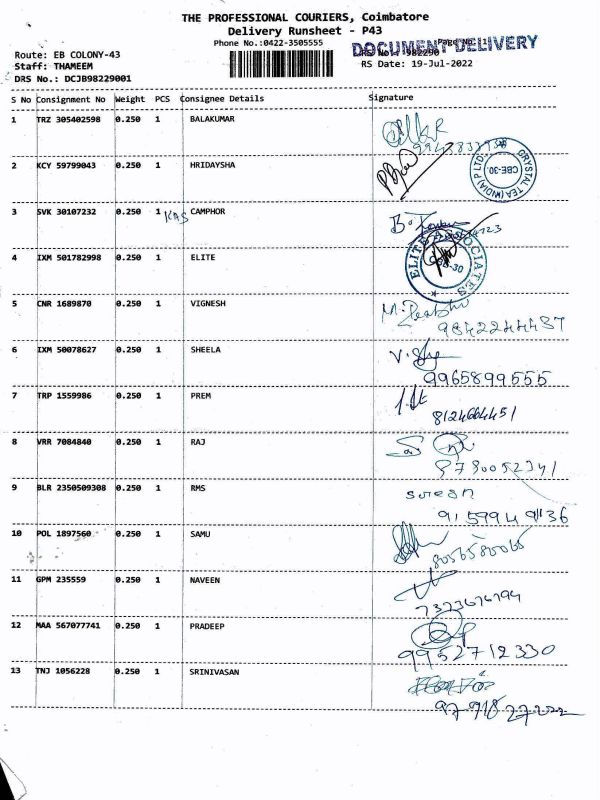 THE PROFESSIONAL COURIERS, Coimbatore
Delivery Runsheet - P43
Phone No.:0422-3505555
Page No. 1
DOCUMENT DELIVERY
Route: EB COLONY-43
DRS No.: 982290
Staff: THAMEEM
RS Date: 19-Jul-2022
DRS No.: DCJB98229001
S No Consignment No Weight PCS Consignee Details Signature
1 TRZ 305402598 0.250 1 BALAKUMAR
CRYSTAL TEA (INDIA) P LTD. CBE-30
2 KCY 59799043 0.250 1 HRIDAYSHA
3 SVK 30107232 0.250 1 KAS CAMPHOR
4 IXM 501782998 0.250 1 ELITE
ELITE ASSOCIATES
5 CNR 1689870 0.250 1 VIGNESH
9842244437
6 IXM 50078627 0.250 1 SHEELA
9965899555
7 TRP 1559986 0.250 1 PREM
8124664451
8 VRR 7084840 0.250 1 RAJ
9780052341
9 BLR 2350509308 0.250 1 RMS
suresh
10 POL 1897560 0.250 1 SAMU
8056580065
11 GPM 235559 0.250 1 NAVEEN
7323676794
12 MAA 567077741 0.250 1 PRADEEP
9952712330
13 TNJ 1056228 0.250 1 SRINIVASAN